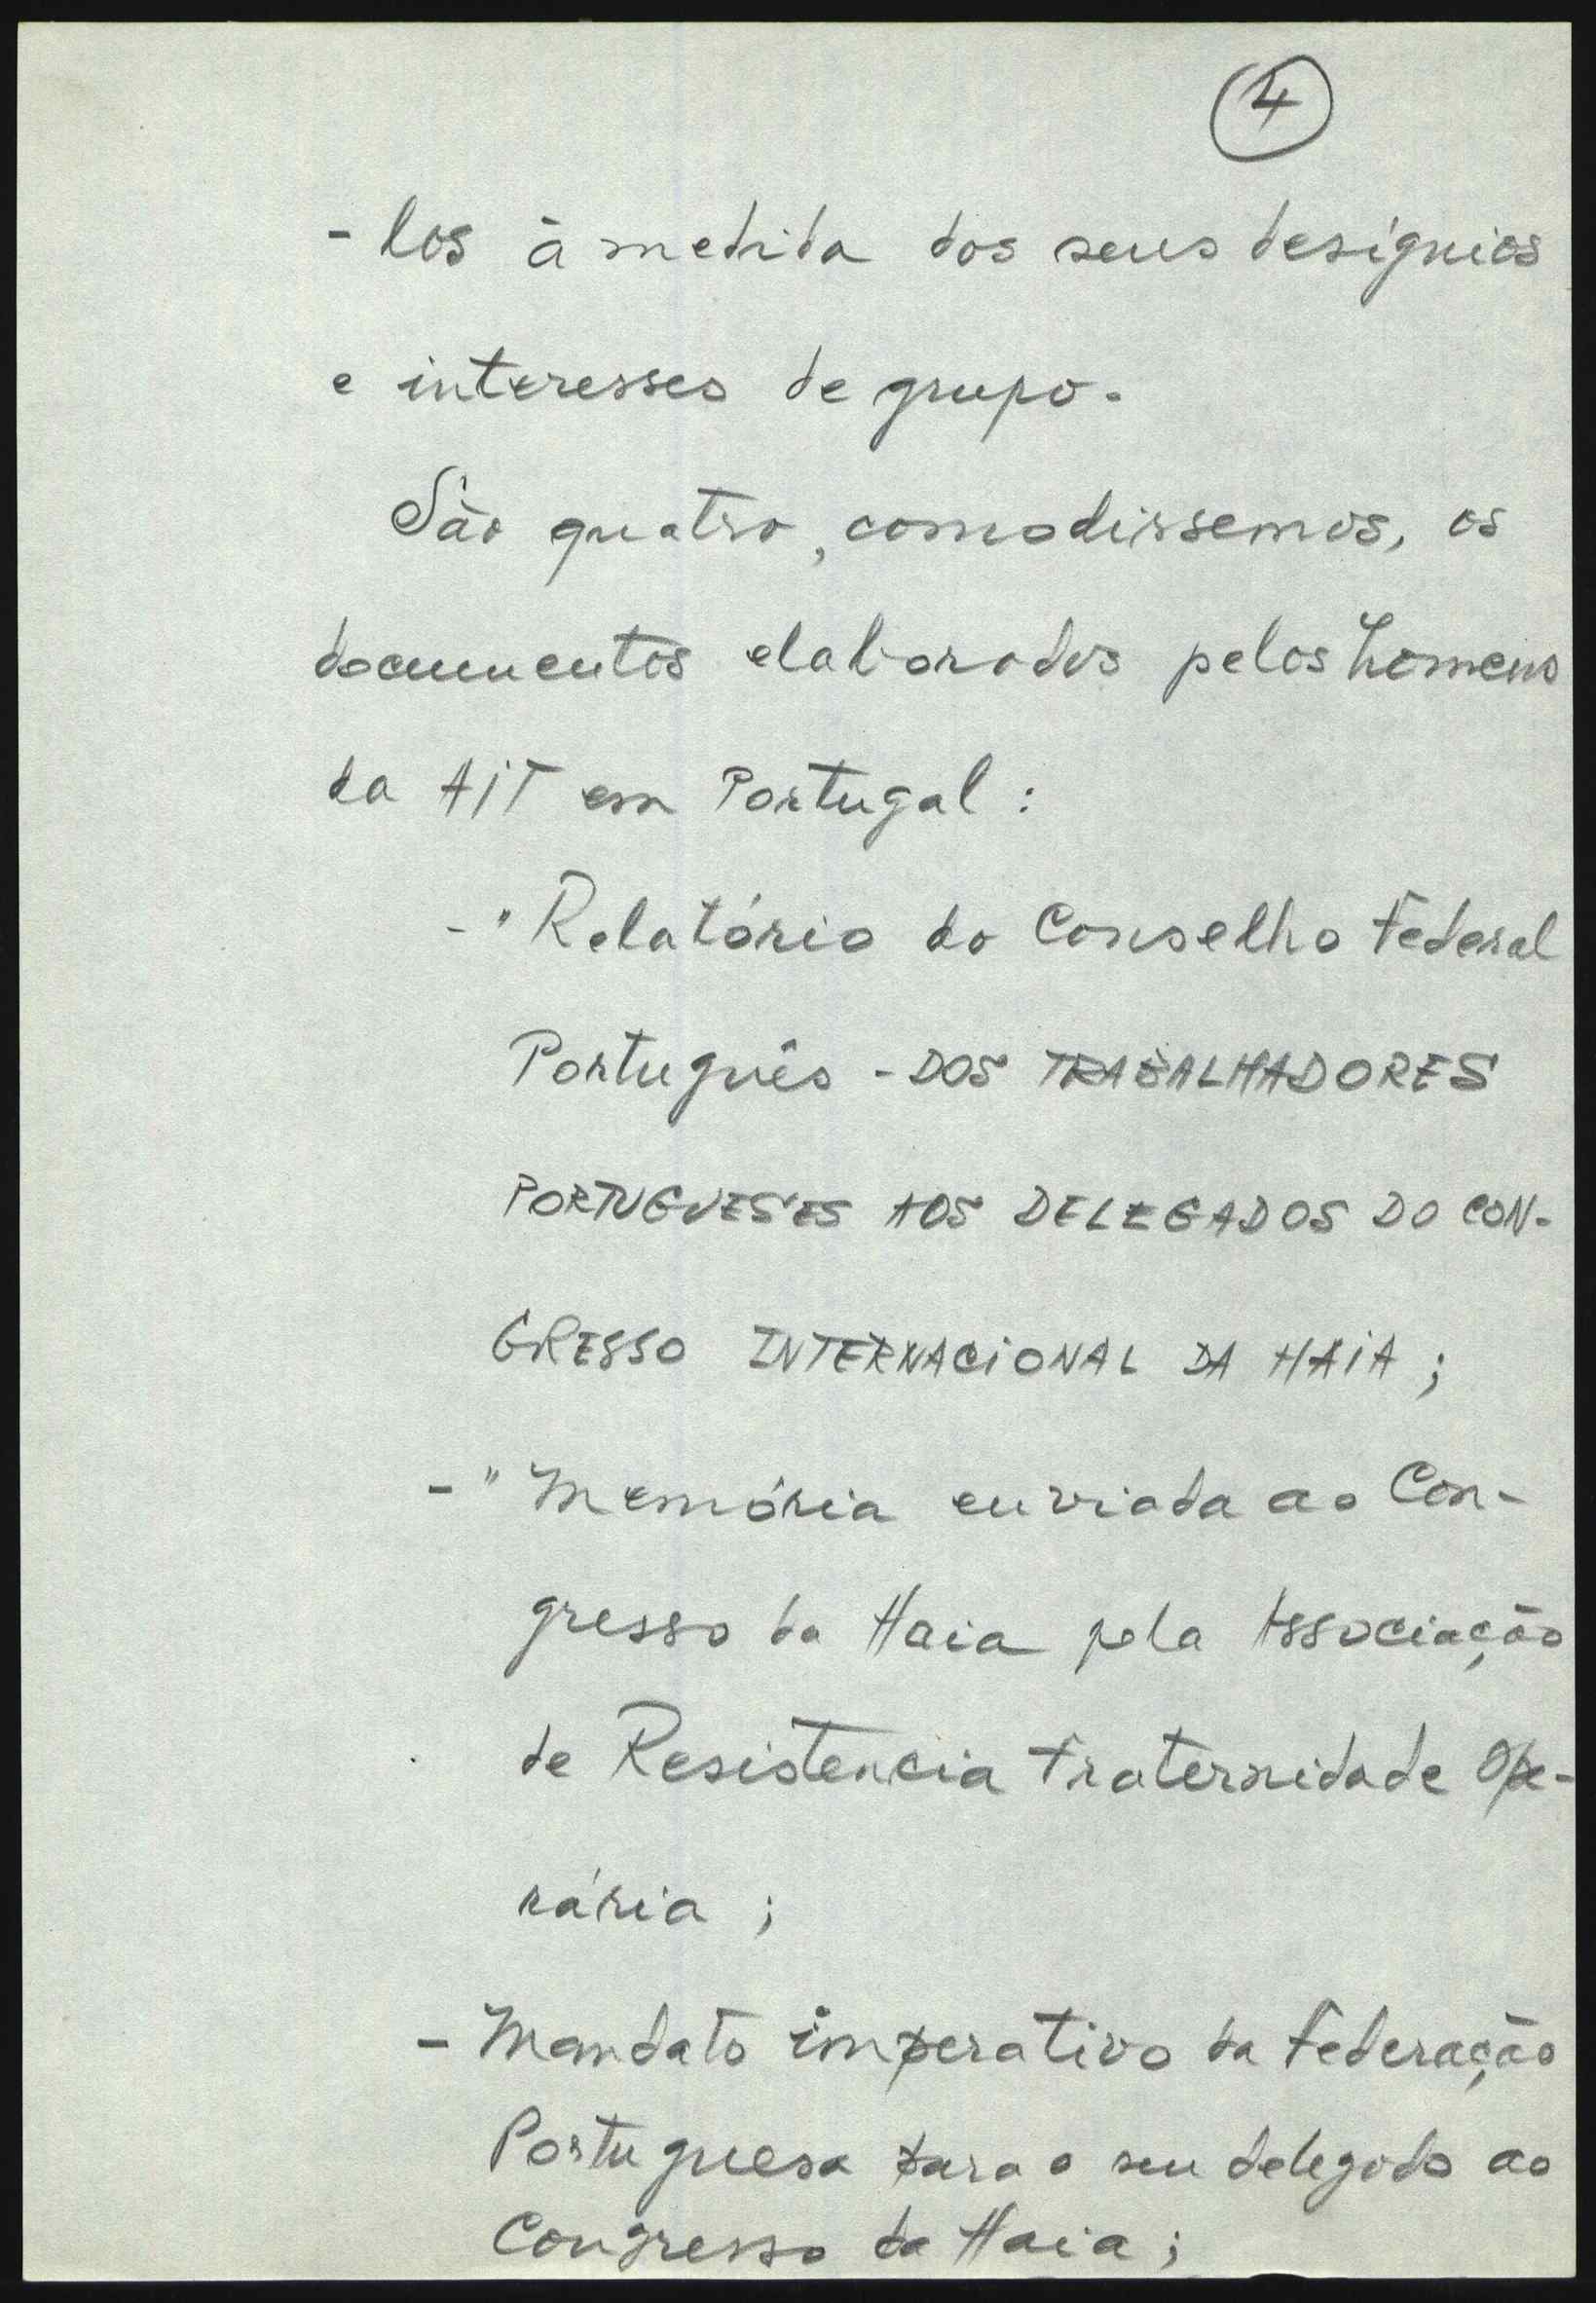 4
-los à medida dos seus desígnios
e interesses de grupo.
São quatro, como dissemos, os
documentos elaborados pelos homens
da AIT em Portugal :
- "Relatório do Conselho Federal
Português - DOS TRABALHADORES
PORTUGUESES AOS DELEGADOS DO CON-
GRESSO INTERNACIONAL DA HAIA ;
- "Memória enviada ao Con-
gresso da Haia pela Associação
de Resistencia Fraternidade Ope-
rária ;
- Mandato imperativo da Federação
Portuguesa para o seu delegado ao
Congresso da Haia ;